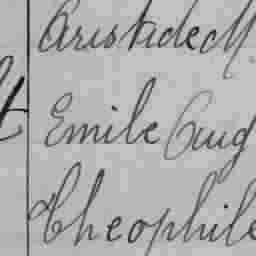 Aristide M.
Emile Aug
Theophile